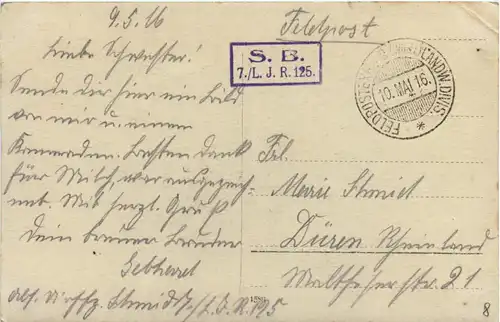 9.5.16
Feldpost
Liebe Schwester!
Sende dir hier ein Bild
von mir u. einem
Kameraden. Besten Dank
für Milch, war ausgezeich-
net. Mit herzl. Gruß
Dein treuer Bruder
Gebhard
Abs. Schmidt 7./L.J.R. 125
S. B.
7./L. J. R. 125.
FELDPOST LANDW. DIVIS.
10. MAI 16.
Frl.
Marie Schmid
Düren Rheinland
Malteserstr. 21
8